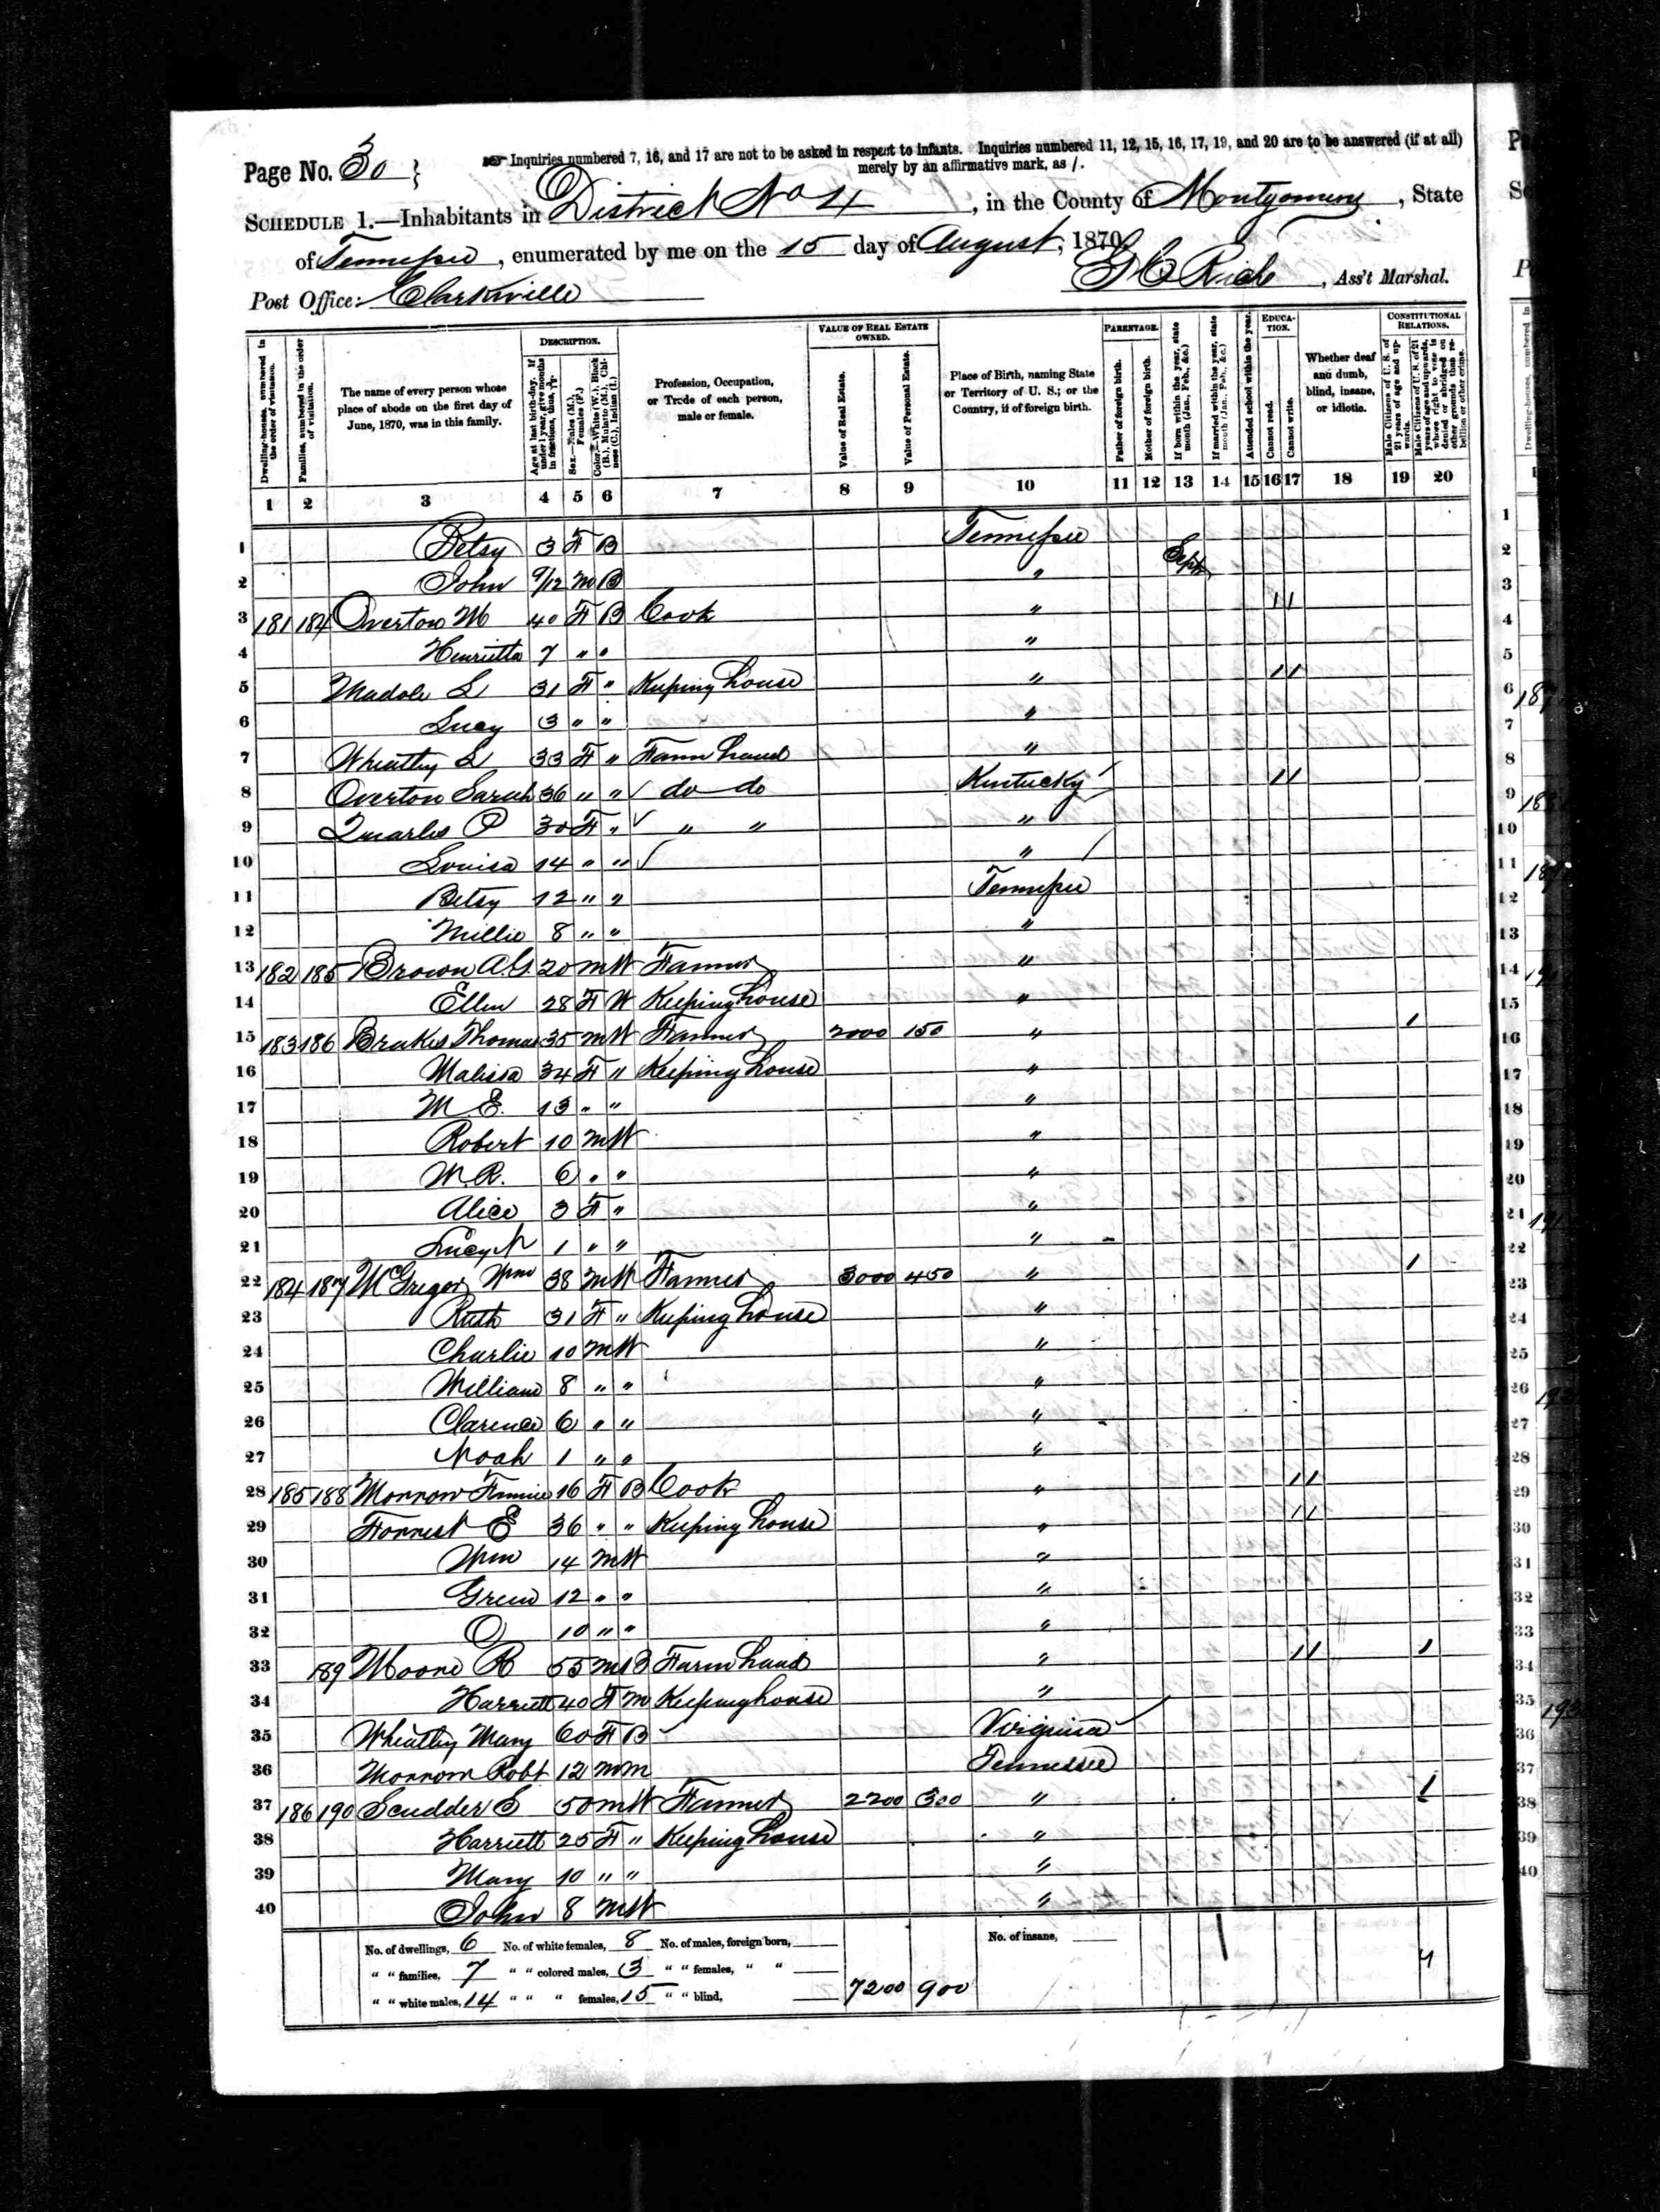 Page No. 30
Inquiries numbered 7, 16, and 17 are not to be asked in respect to infants. Inquiries numbered 11, 12, 15, 16, 17, 19, and 20 are to be answered (if at all)
merely by an affirmative mark, as /.
SCHEDULE 1.—Inhabitants in District No 4, in the County of Montgomery, State
of Tennessee, enumerated by me on the 15 day of August, 1870
Post Office: Clarksville
G C Rich, Ass't Marshal.
Dwelling-houses, numbered in the order of visitation.
Families, numbered in the order of visitation.
The name of every person whose place of abode on the first day of June, 1870, was in this family.
DESCRIPTION.
Age at last birth-day. If under 1 year, give months in fractions, thus, 3/12.
Sex.—Males (M.), Females (F.)
Color.—White (W.), Black (B.), Mulatto (M.), Chinese (C.), Indian (I.)
Profession, Occupation, or Trade of each person, male or female.
VALUE OF REAL ESTATE OWNED.
Value of Real Estate.
Value of Personal Estate.
Place of Birth, naming State or Territory of U. S.; or the Country, if of foreign birth.
PARENTAGE.
Father of foreign birth.
Mother of foreign birth.
If born within the year, state month (Jan., Feb., &c.)
If married within the year, state month (Jan., Feb., &c.)
Attended school within the year.
EDUCATION.
Cannot read.
Cannot write.
Whether deaf and dumb, blind, insane, or idiotic.
CONSTITUTIONAL RELATIONS.
Male Citizens of U. S. of 21 years of age and upwards.
Male Citizens of U. S. of 21 years of age and upwards, whose right to vote is denied or abridged on other grounds than rebellion or other crime.
1 2 3 4 5 6 7 8 9 10 11 12 13 14 15 16 17 18 19 20
1 Betsy 3 F B Tennessee
2 John 9/12 M B " Sept
3 181 184 Overton M 40 F B Cook " 1 1
4 Henrietta 7 " " "
5 Madole L 31 F " Keeping house " 1 1
6 Lucy 3 " " "
7 Wheatley L 33 F " Farm hand "
8 Overton Sarah 36 " " ✓ do do Kentucky / 1 1
9 Quarles P 30 F " ✓ " " "
10 Louisa 14 " " ✓ " /
11 Betsy 12 " " Tennessee
12 Millie 8 " " "
13 182 185 Brown A G 20 M W Farmer "
14 Ellen 28 F W Keeping house "
15 183 186 Brakes Thomas 35 M W Farmer 2000 150 " 1
16 Malissa 34 F " Keeping house "
17 M E. 13 " " "
18 Robert 10 M W "
19 W. R. 6 " " "
20 Alice 3 F " "
21 Lucy N 1 " " "
22 184 187 McGregor Wm 38 M W Farmer 3000 450 " 1
23 Ruth 31 F " Keeping house "
24 Charlie 10 M W "
25 William 8 " " "
26 Clarence 6 " " "
27 Noah 1 " " "
28 185 188 Morrow Fannie 16 F B Cook " 1 1
29 Forrest E 36 " " Keeping house " 1 1
30 Wm 14 M W "
31 Green 12 " " "
32 O 10 " " "
33 189 Moore R 55 M B Farm hand " 1 1 1
34 Harriett 40 F M Keeping house "
35 Wheatley Mary 60 F B Virginia ✓
36 Morrow Robt 12 M M Tennessee
37 186 190 Scudder S 50 M W Farmer 2200 300 " 1
38 Harriett 25 F " Keeping house "
39 Mary 10 " " "
40 John 8 M W "
No. of dwellings, 6 No. of white females, 8 No. of males, foreign born, No. of insane,
" " families, 7 " " colored males, 3 " " females, " "
" " white males, 14 " " " females, 15 " " blind, 7200 900 4